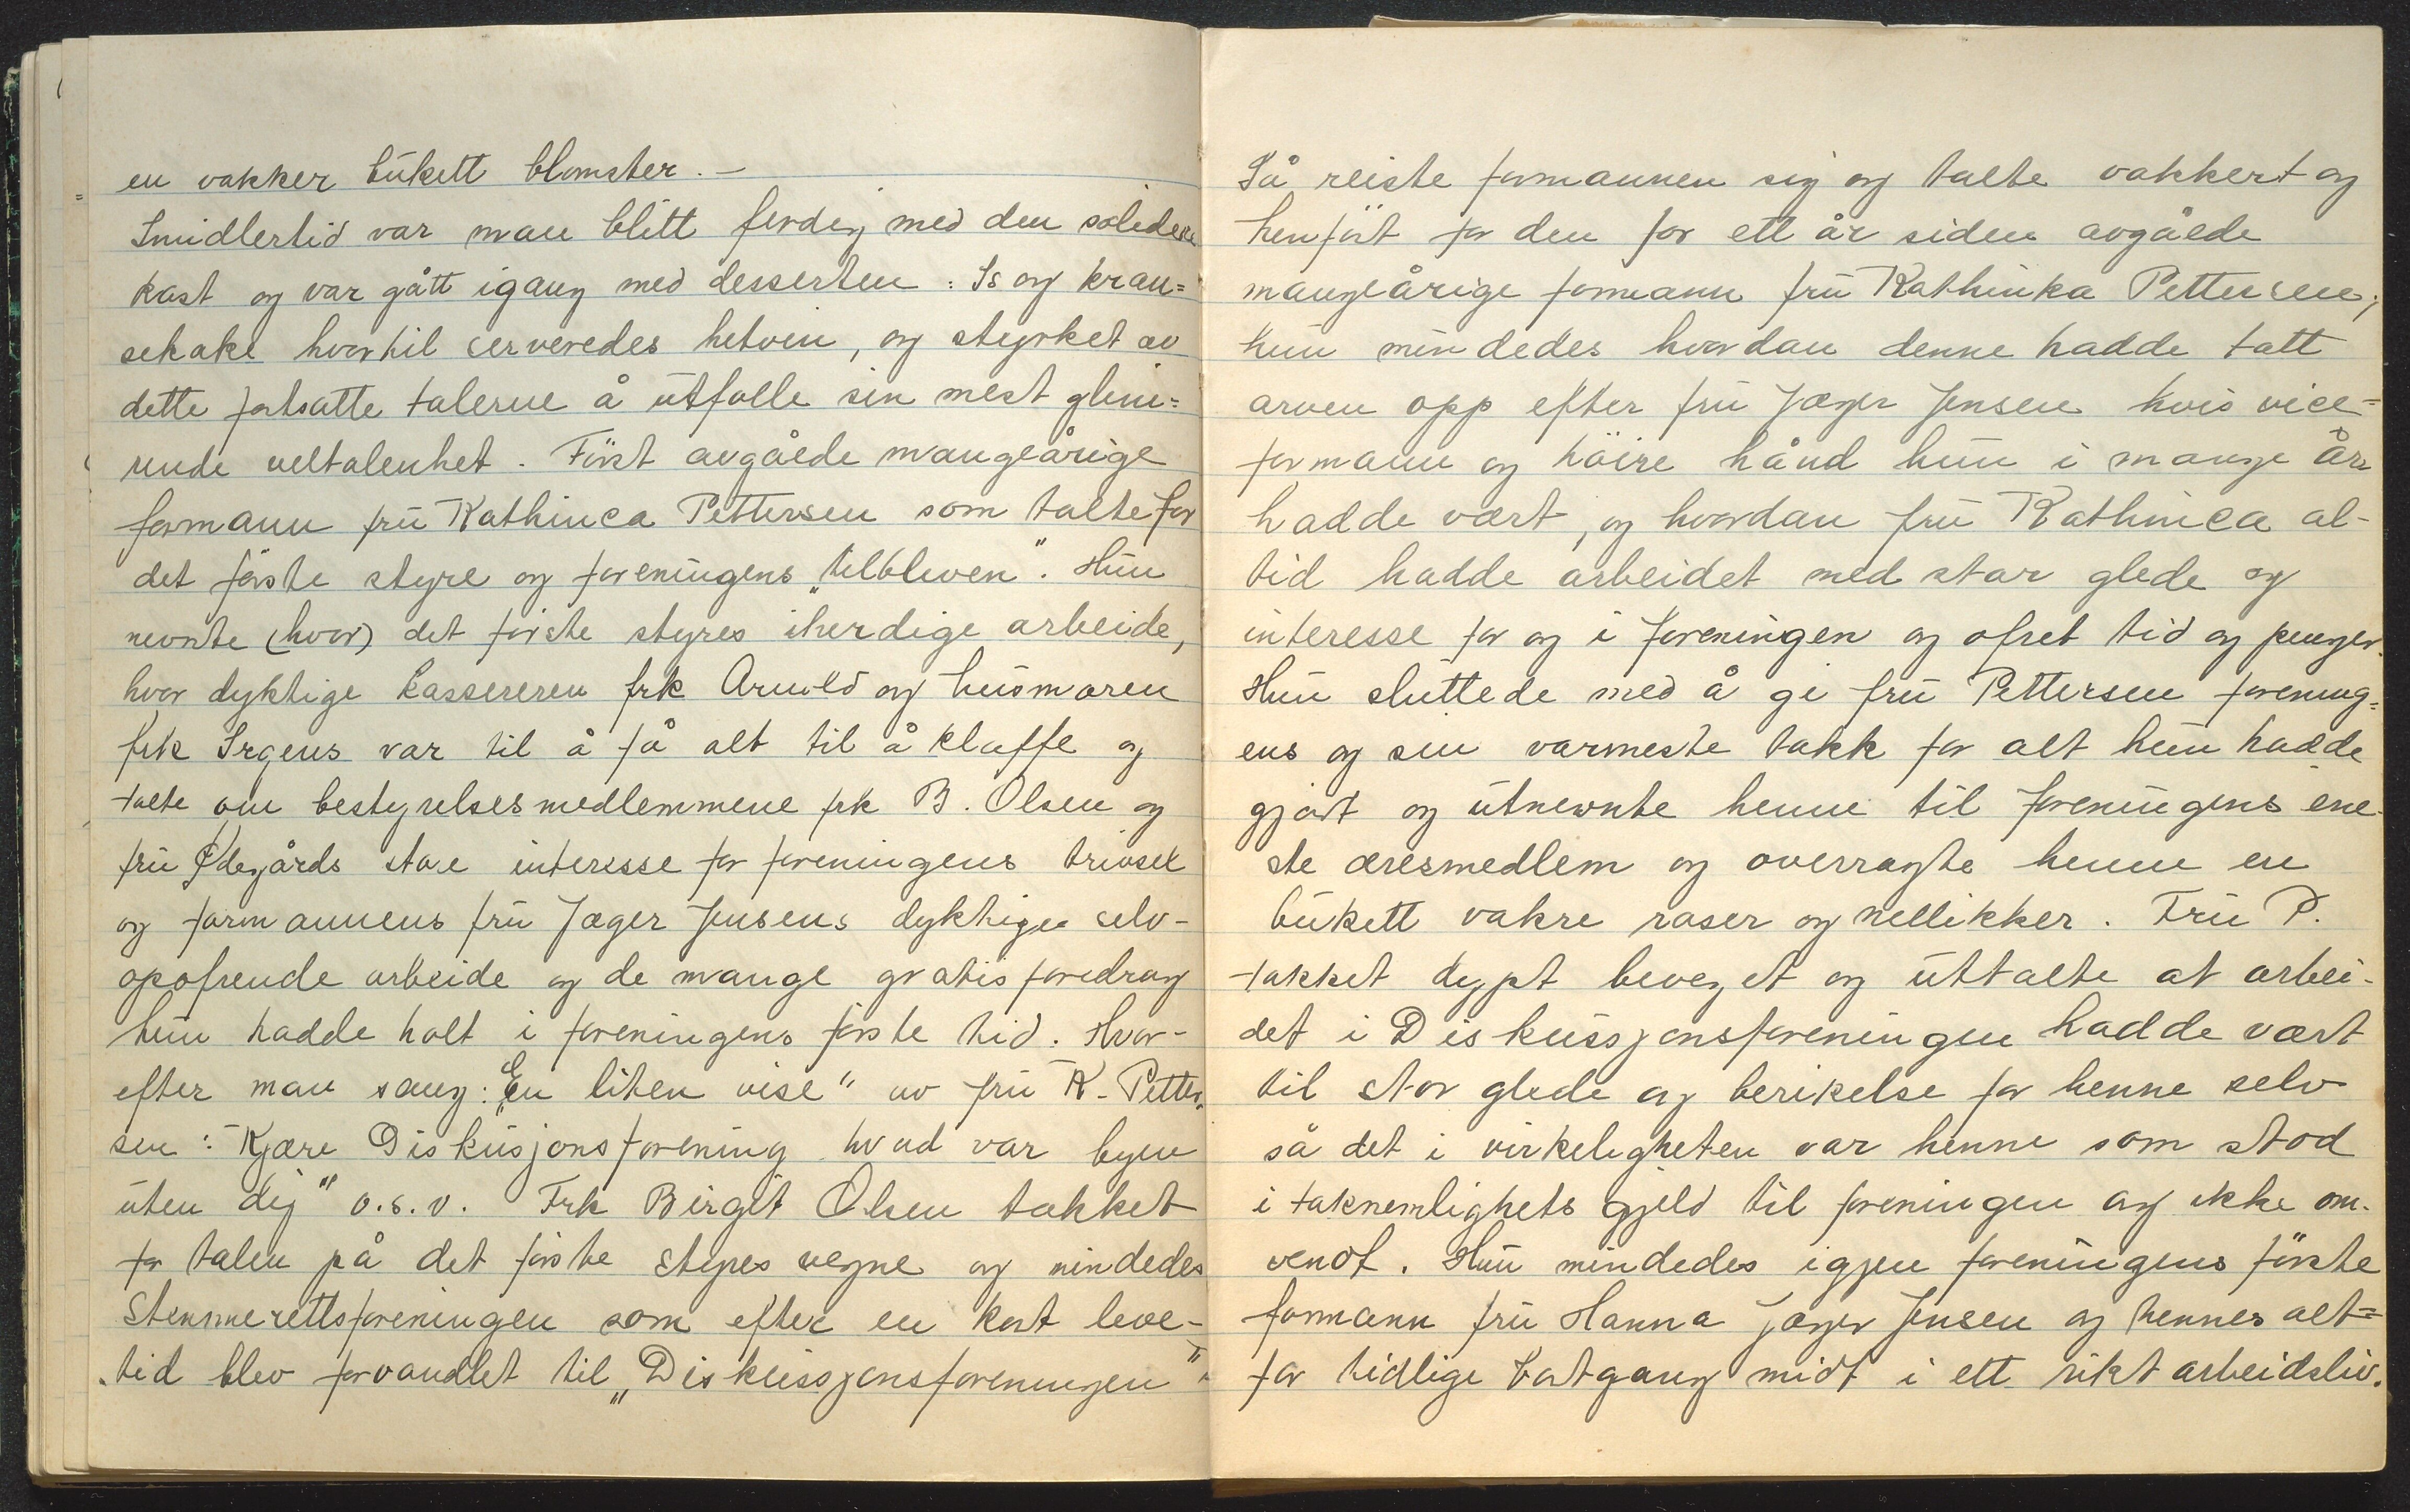 en vakker bukett blomster. –
Imidlertid var man blitt ferdig med den solidere
kost og var gått igang med desserten: Is og kran=
sekake hvortil serveredes hetvin, og styrket av
dette fortsatte talerne å utfolle sin mest glim=
rende veltalenhet. Först avgåede mangeårige
formann fru Kathinca Pettersen som talte for
det förste styre og foreningens „tilbliven“. Hun
nevnte (hvor) det förste styres iherdige arbeide,
hvor dyktige kassereren frk Arnold og husmoren
frk Irgens var til å få alt til å klaffe og
talte om bestyrelsesmedlemmene frk B. Olsen og
fru Ødegårds store interesse for foreningens trivsel
og formannens fru Jæger Jensens dyktige selv-
opofrende arbeide og de mange gratis foredrag
hun hadde holt i foreningens förste tid. Hvor-
efter man sang: „En liten vise“ av fru K. Petter-
sen: "Kjære Diskusjonsforening hvad var byen
uten dig" o.s.v. Frk Birgit Olsen takket
for talen på det förste styres vegne og mindedes
Stemmerettsforeningen som efter en kort leve-
tid blev forvandlet til „Diskussjonsforeningen“
Så reiste formannen sig og talte vakkert og
henfört for den for ett år siden avgåede
mangeårige formann fru Kathinka Pettersen;
hun mindedes hvordan denne hadde tatt
arven opp efter fru Jæger Jensen hvis vice=
formann og höire hånd hun i mange år
hadde vært, og hvordan fru Kathinca al-
tid hadde arbeidet med stor glede og
interesse for og i foreningen og ofret tid og penger.
Hun sluttede med å gi fru Pettersen forening=
ens og sin varmeste takk for alt hun hadde
gjort og utnevnte henne til foreningens ene-
ste æresmedlem og overragte henne en
bukett vakre roser og nellikker. Fru P.
takket dypt beveget og uttalte at arbei-
det i Diskussjonsforeningen hadde vært
til stor glede og berikelse for henne selv
så det i virkeligheten var henne som stod
i taknemlighets gjeld til foreningen og ikke om-
vendt. Hun mindedes igjen foreningens förste
formann fru Hanna Jæger Jensen og hennes alt=
for tidlige bortgang midt i ett rikt arbeidsliv.